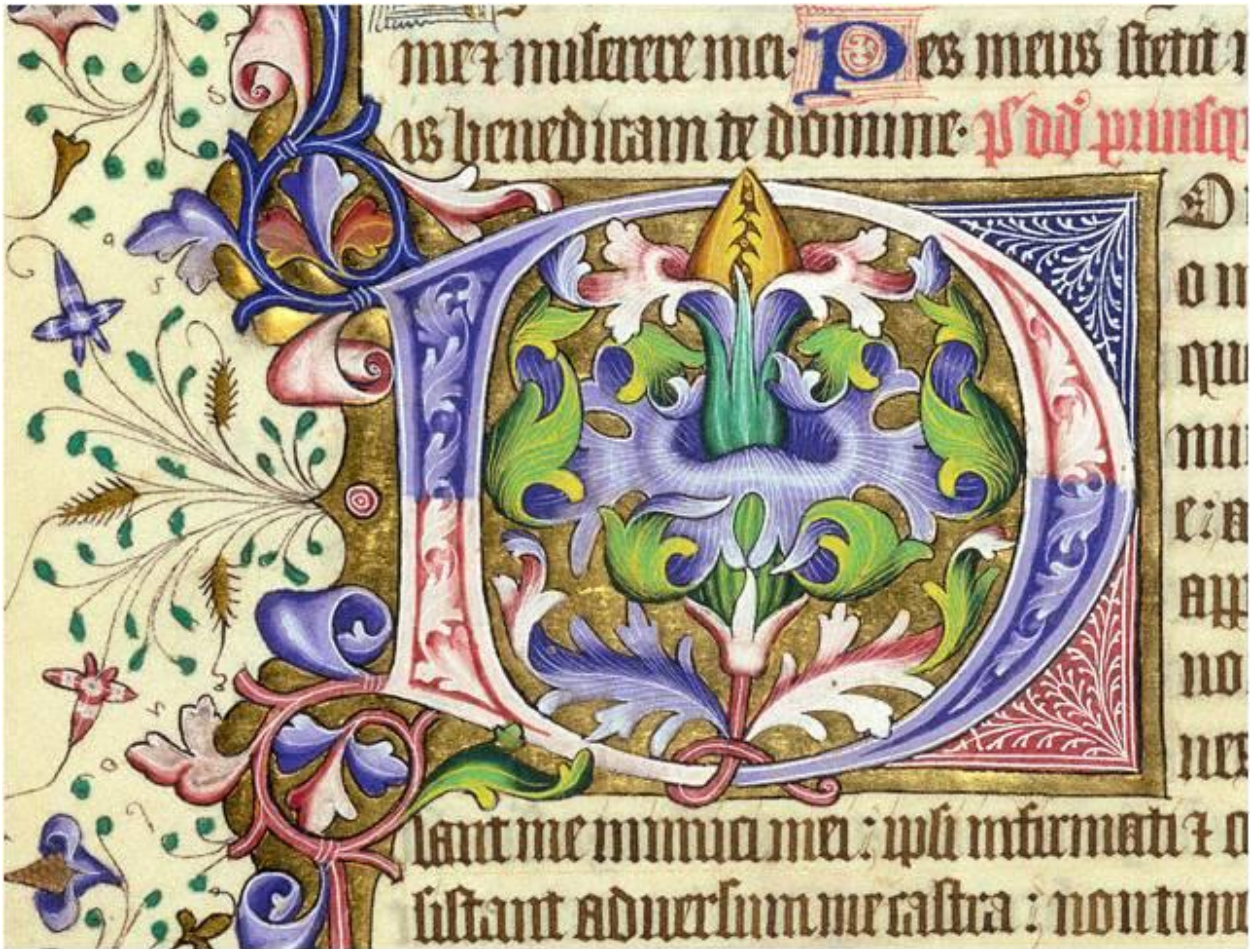 me ⁊ miserere mei· Pes meus stetit i
is benedicam te domine· ps dd priusq
D
qu
mi
e: a
app
no
nes
lant me inimici mei: ipsi infirmati ⁊ c
sistant aduersum me castra: non tim